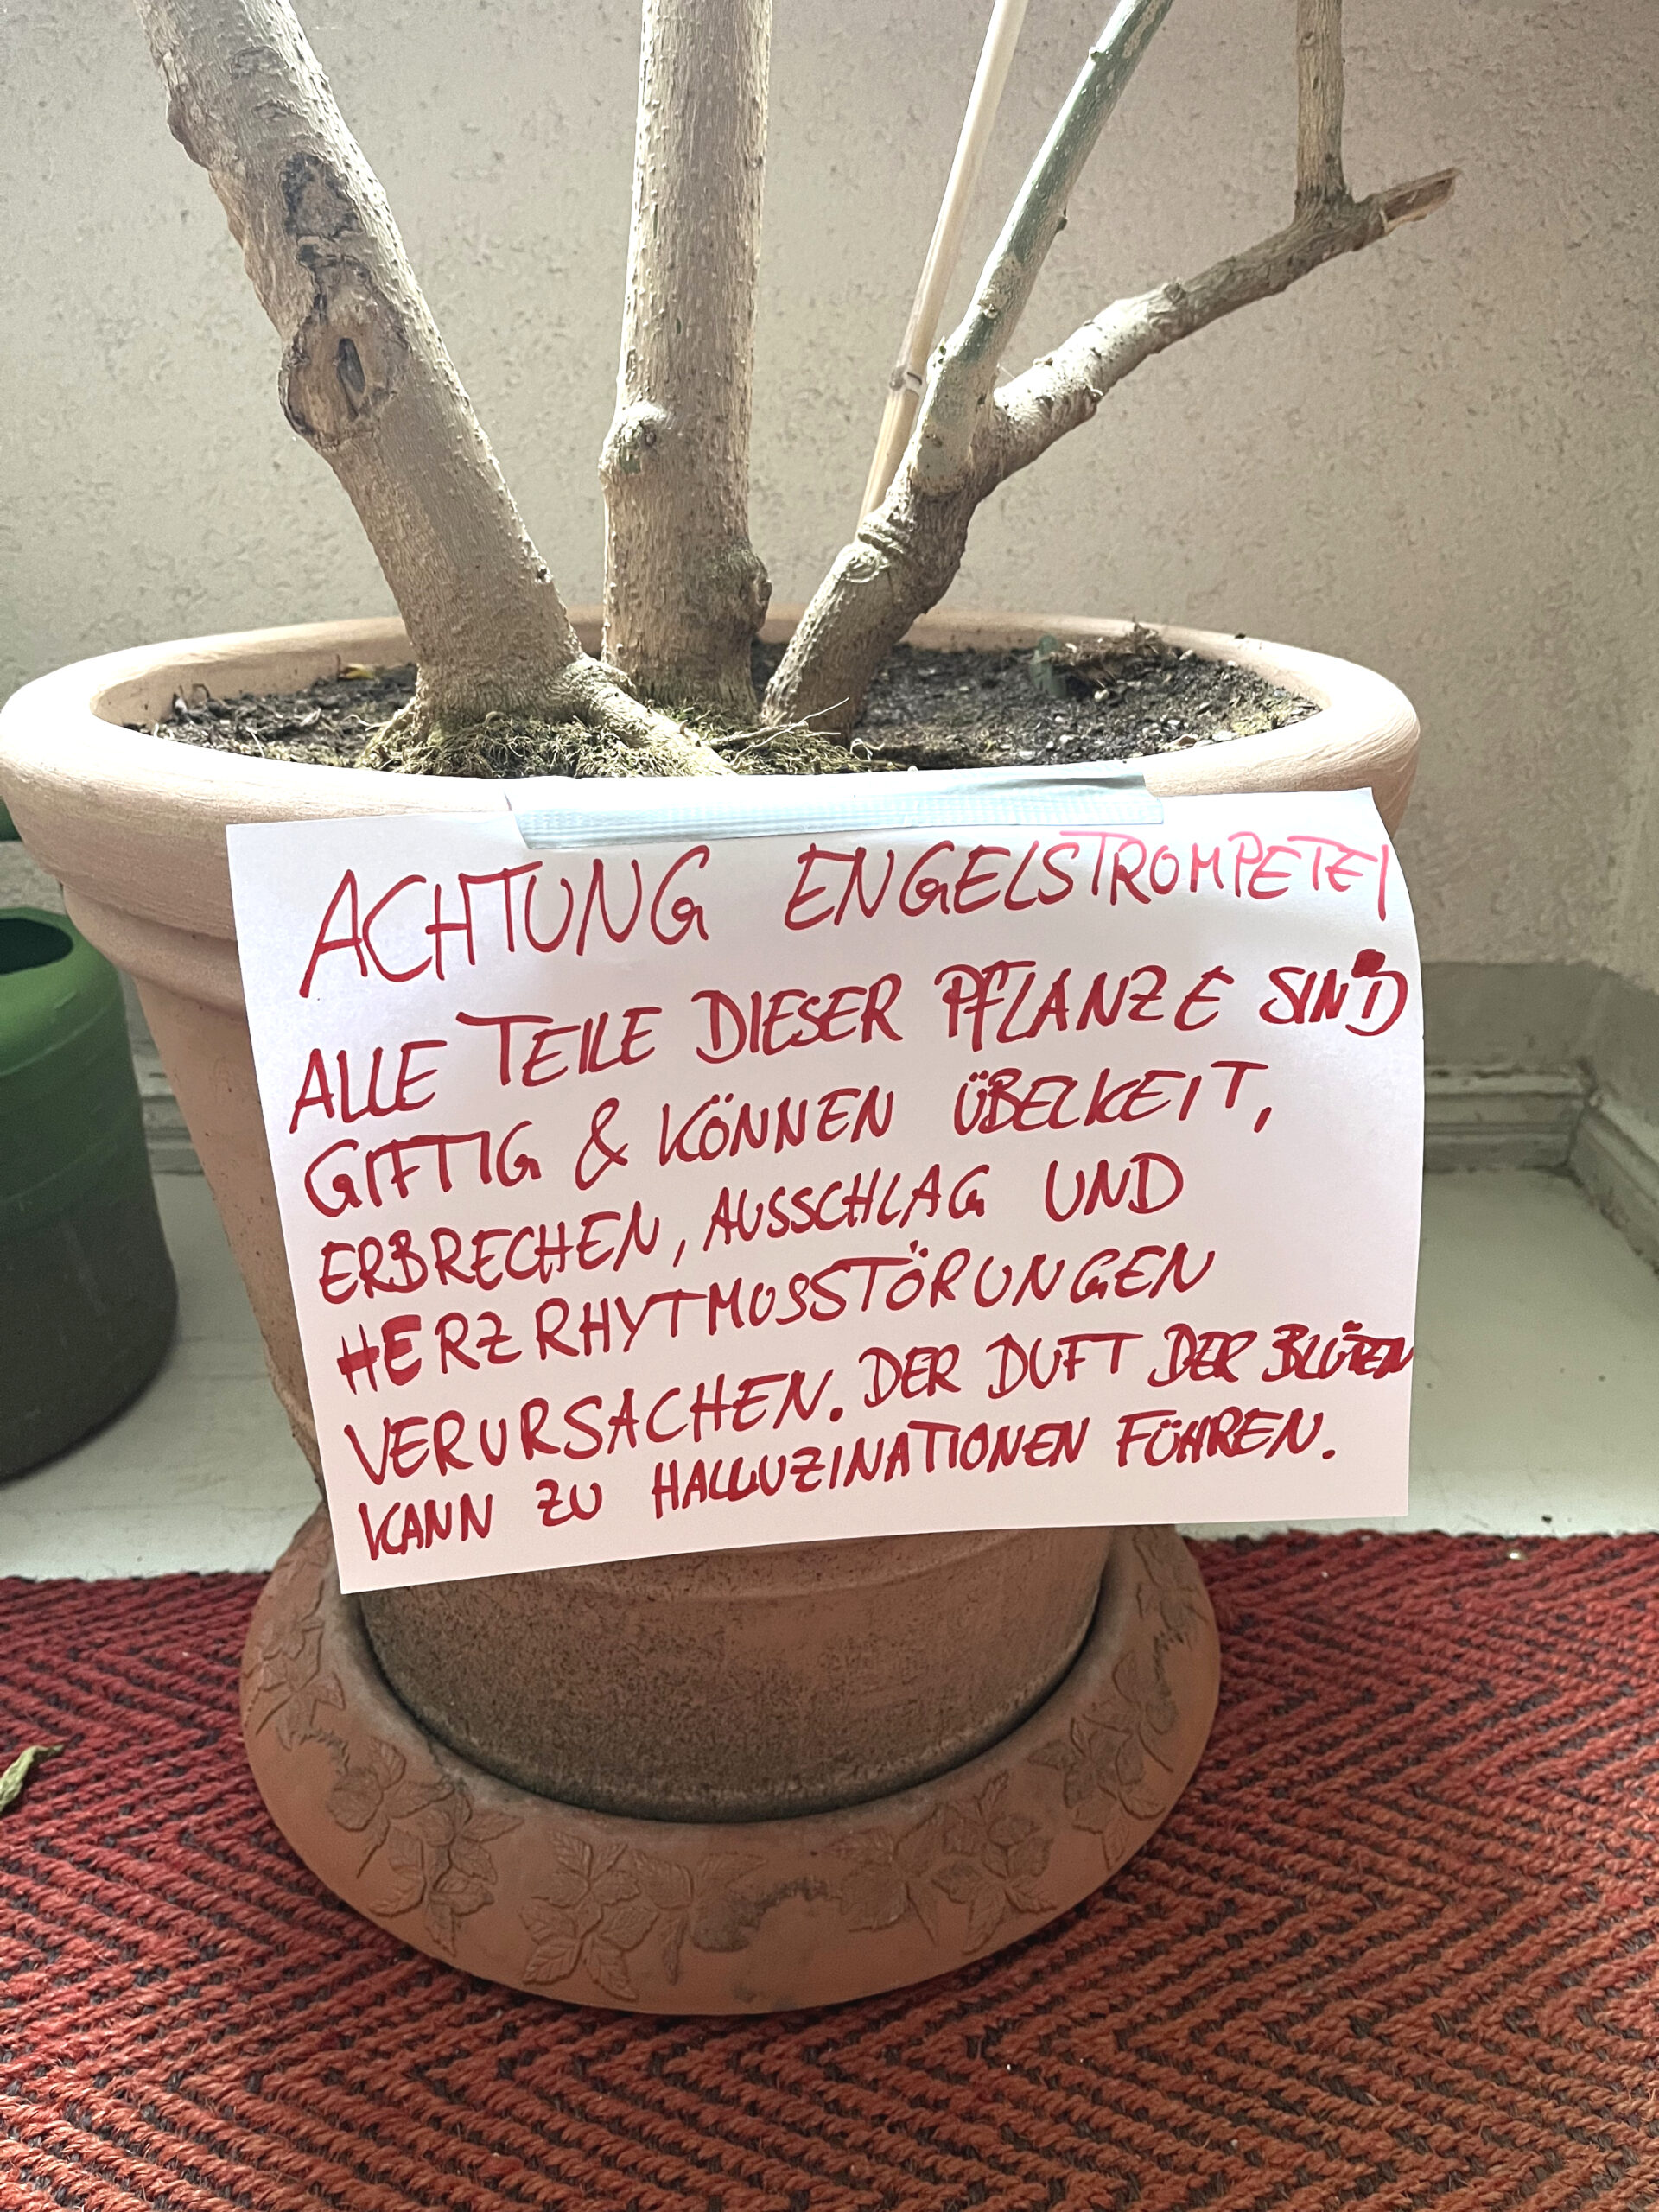 ACHTUNG ENGELSTROMPETE!
ALLE TEILE DIESER PFLANZE SIND
GIFTIG & KÖNNEN ÜBELKEIT,
ERBRECHEN, AUSSCHLAG UND
HERZRHYTMUSSTÖRUNGEN
VERURSACHEN. DER DUFT DER BLÜTEN
KANN ZU HALLUZINATIONEN FÜHREN.